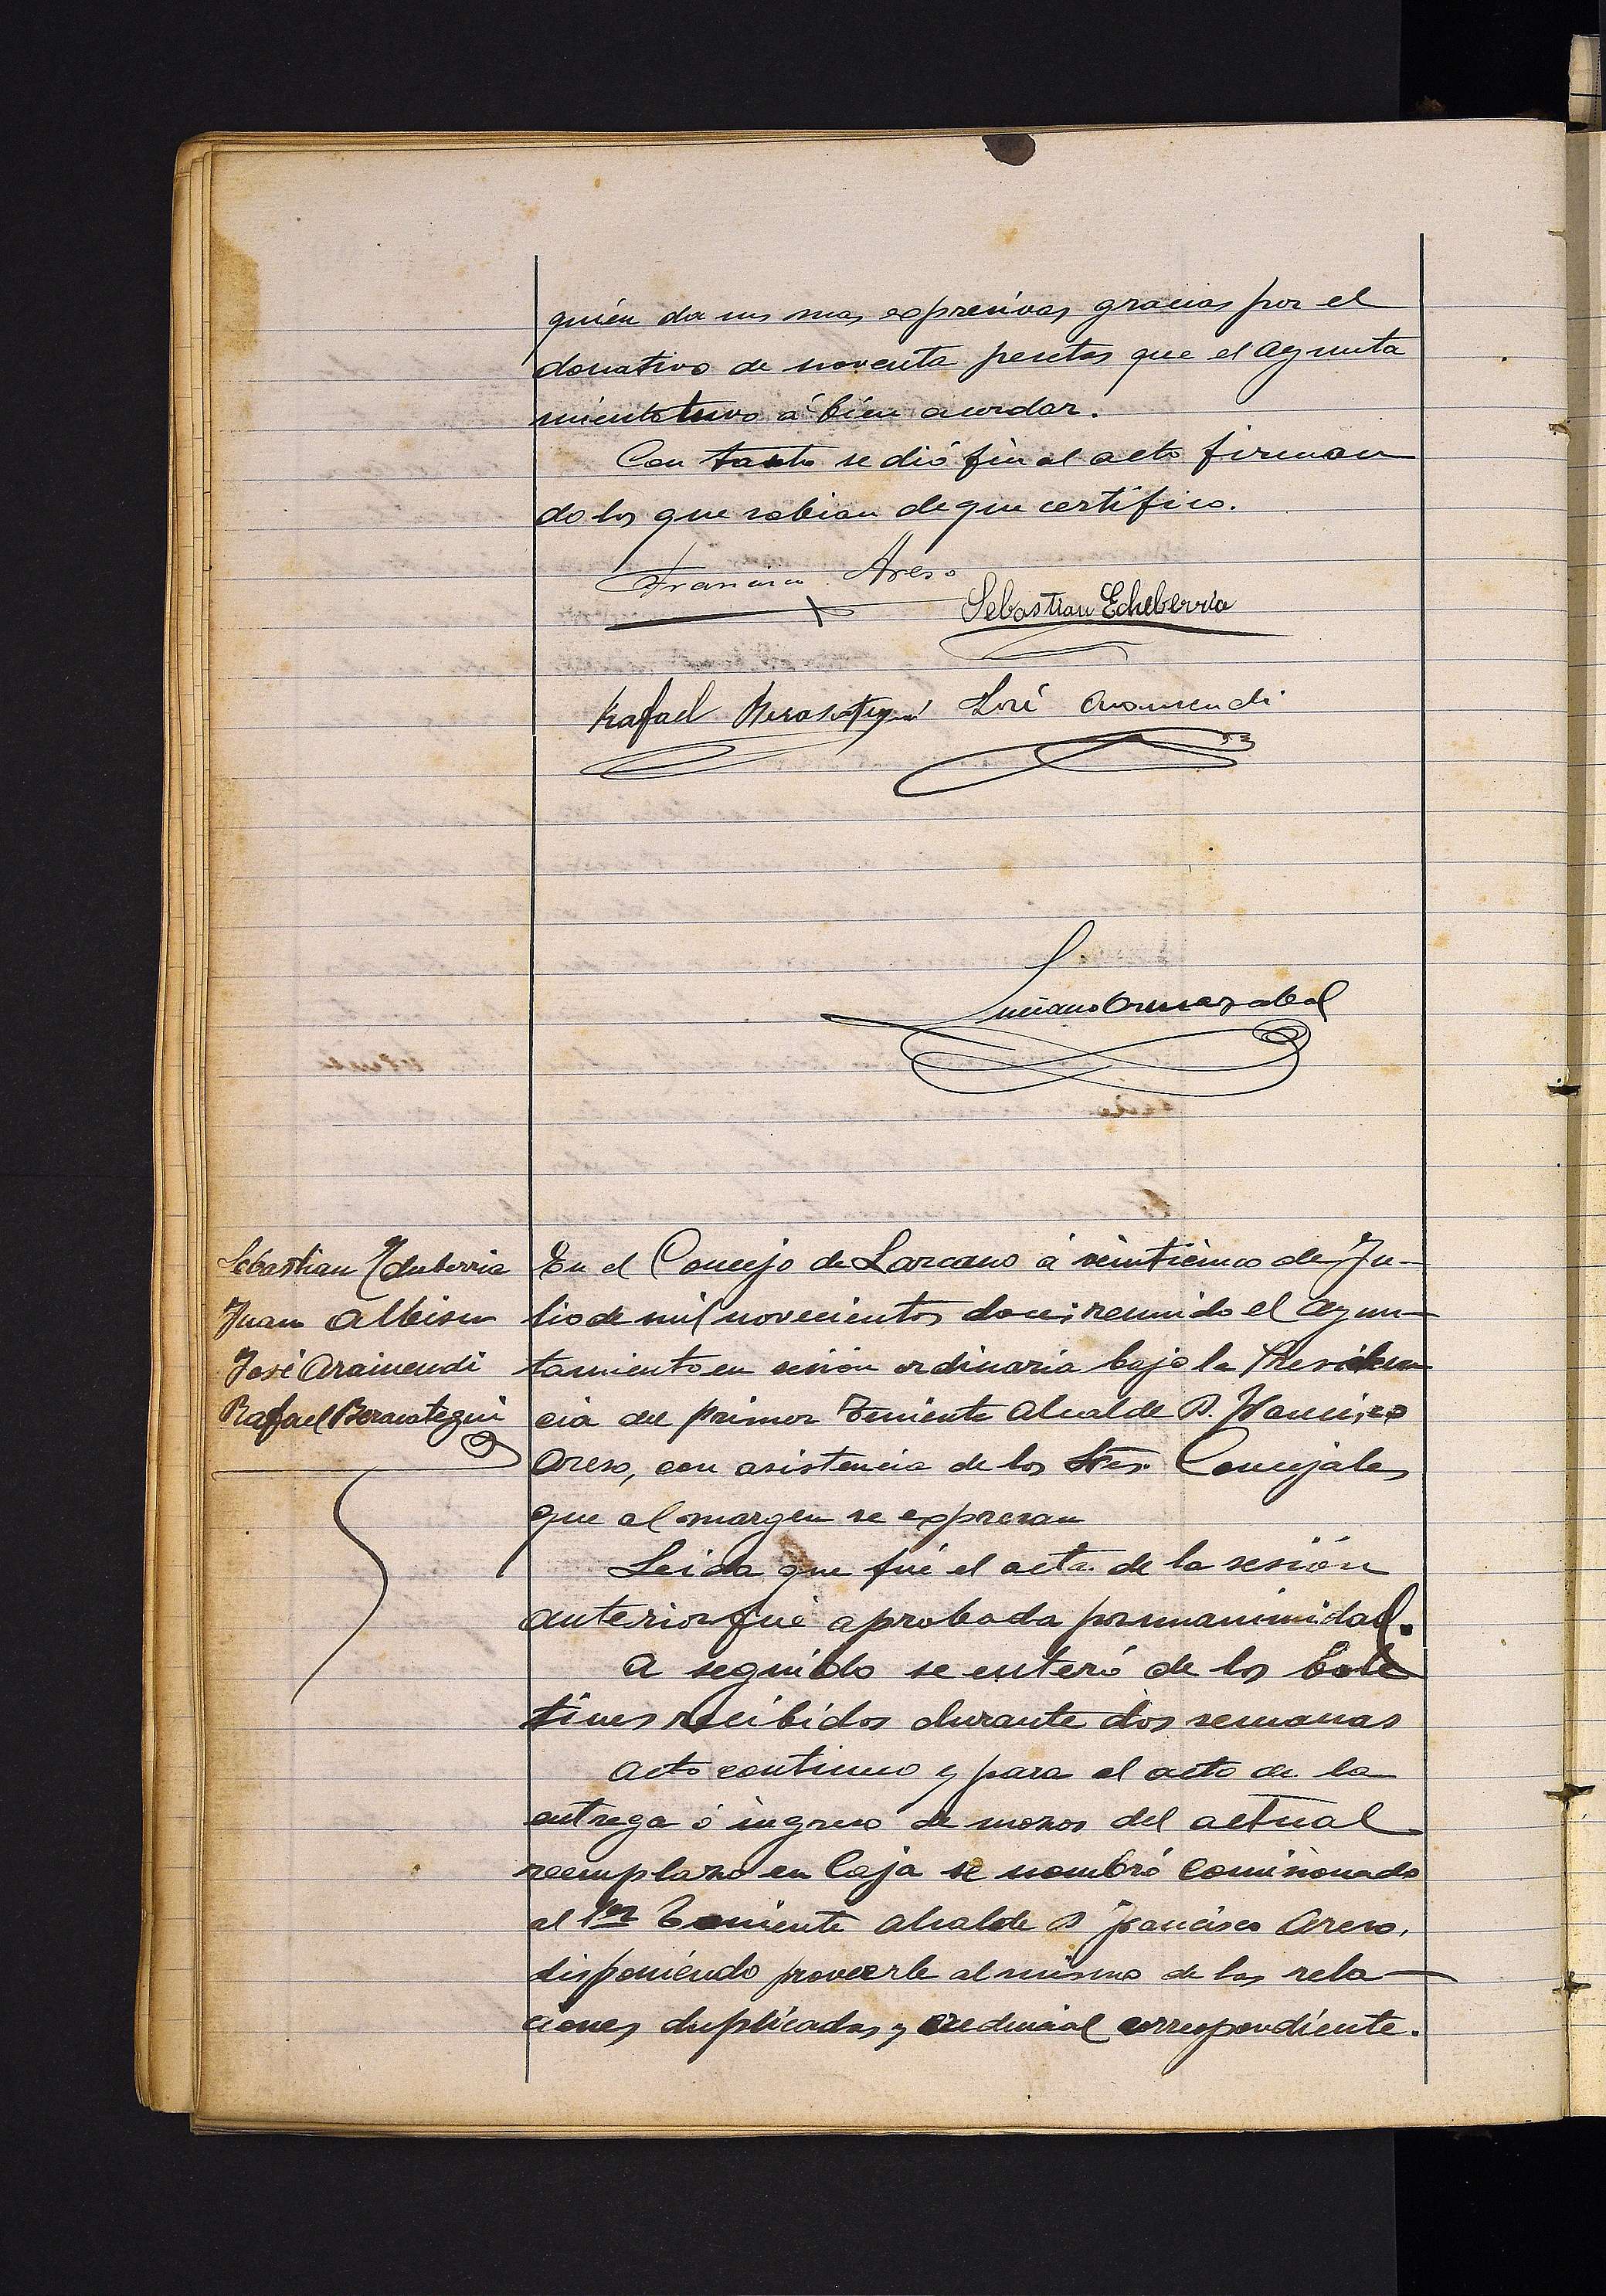 quién da sus mas expresivas gracias por el
donativo de noventa pesetas que el Ayunta
miento tuvo á bien acordar.
Con tanto se dió fin al acto firman
do los que sabian de que certifico.
Francisco Areso
Sebastian Echeberria
Rafael Berasategui José Aramendi
Luciano
Sebastian Echeberria
Juan Albisu
José Aramendi
Rafael Berasategui
En el Concejo de Lazcano á veinticinco de Ju-
lio de mil novecientos doce; reunido el Ayun-
tamiento en sesión ordinaria bajo la Presiden
cia del primer Teniente Alcalde D. Francisco
Areso, con asistencia de los Sres. Concejales
que al margen se expresan
Leida que fué el acta de la sesión
anterior fué aprobada por unanimidad.
A seguido se enteró de los bole
tines recibidos durante dos semanas
Acto continuo y para el acto de la
entrega ó ingreso de mozos del actual
reemplazo en Caja se nombró Comisionado
al 1er Teniente Alcalde D Francisco Areso,
disponiéndo proveerle al mismo de las rela
ciones duplicadas y credencial correspondiente.